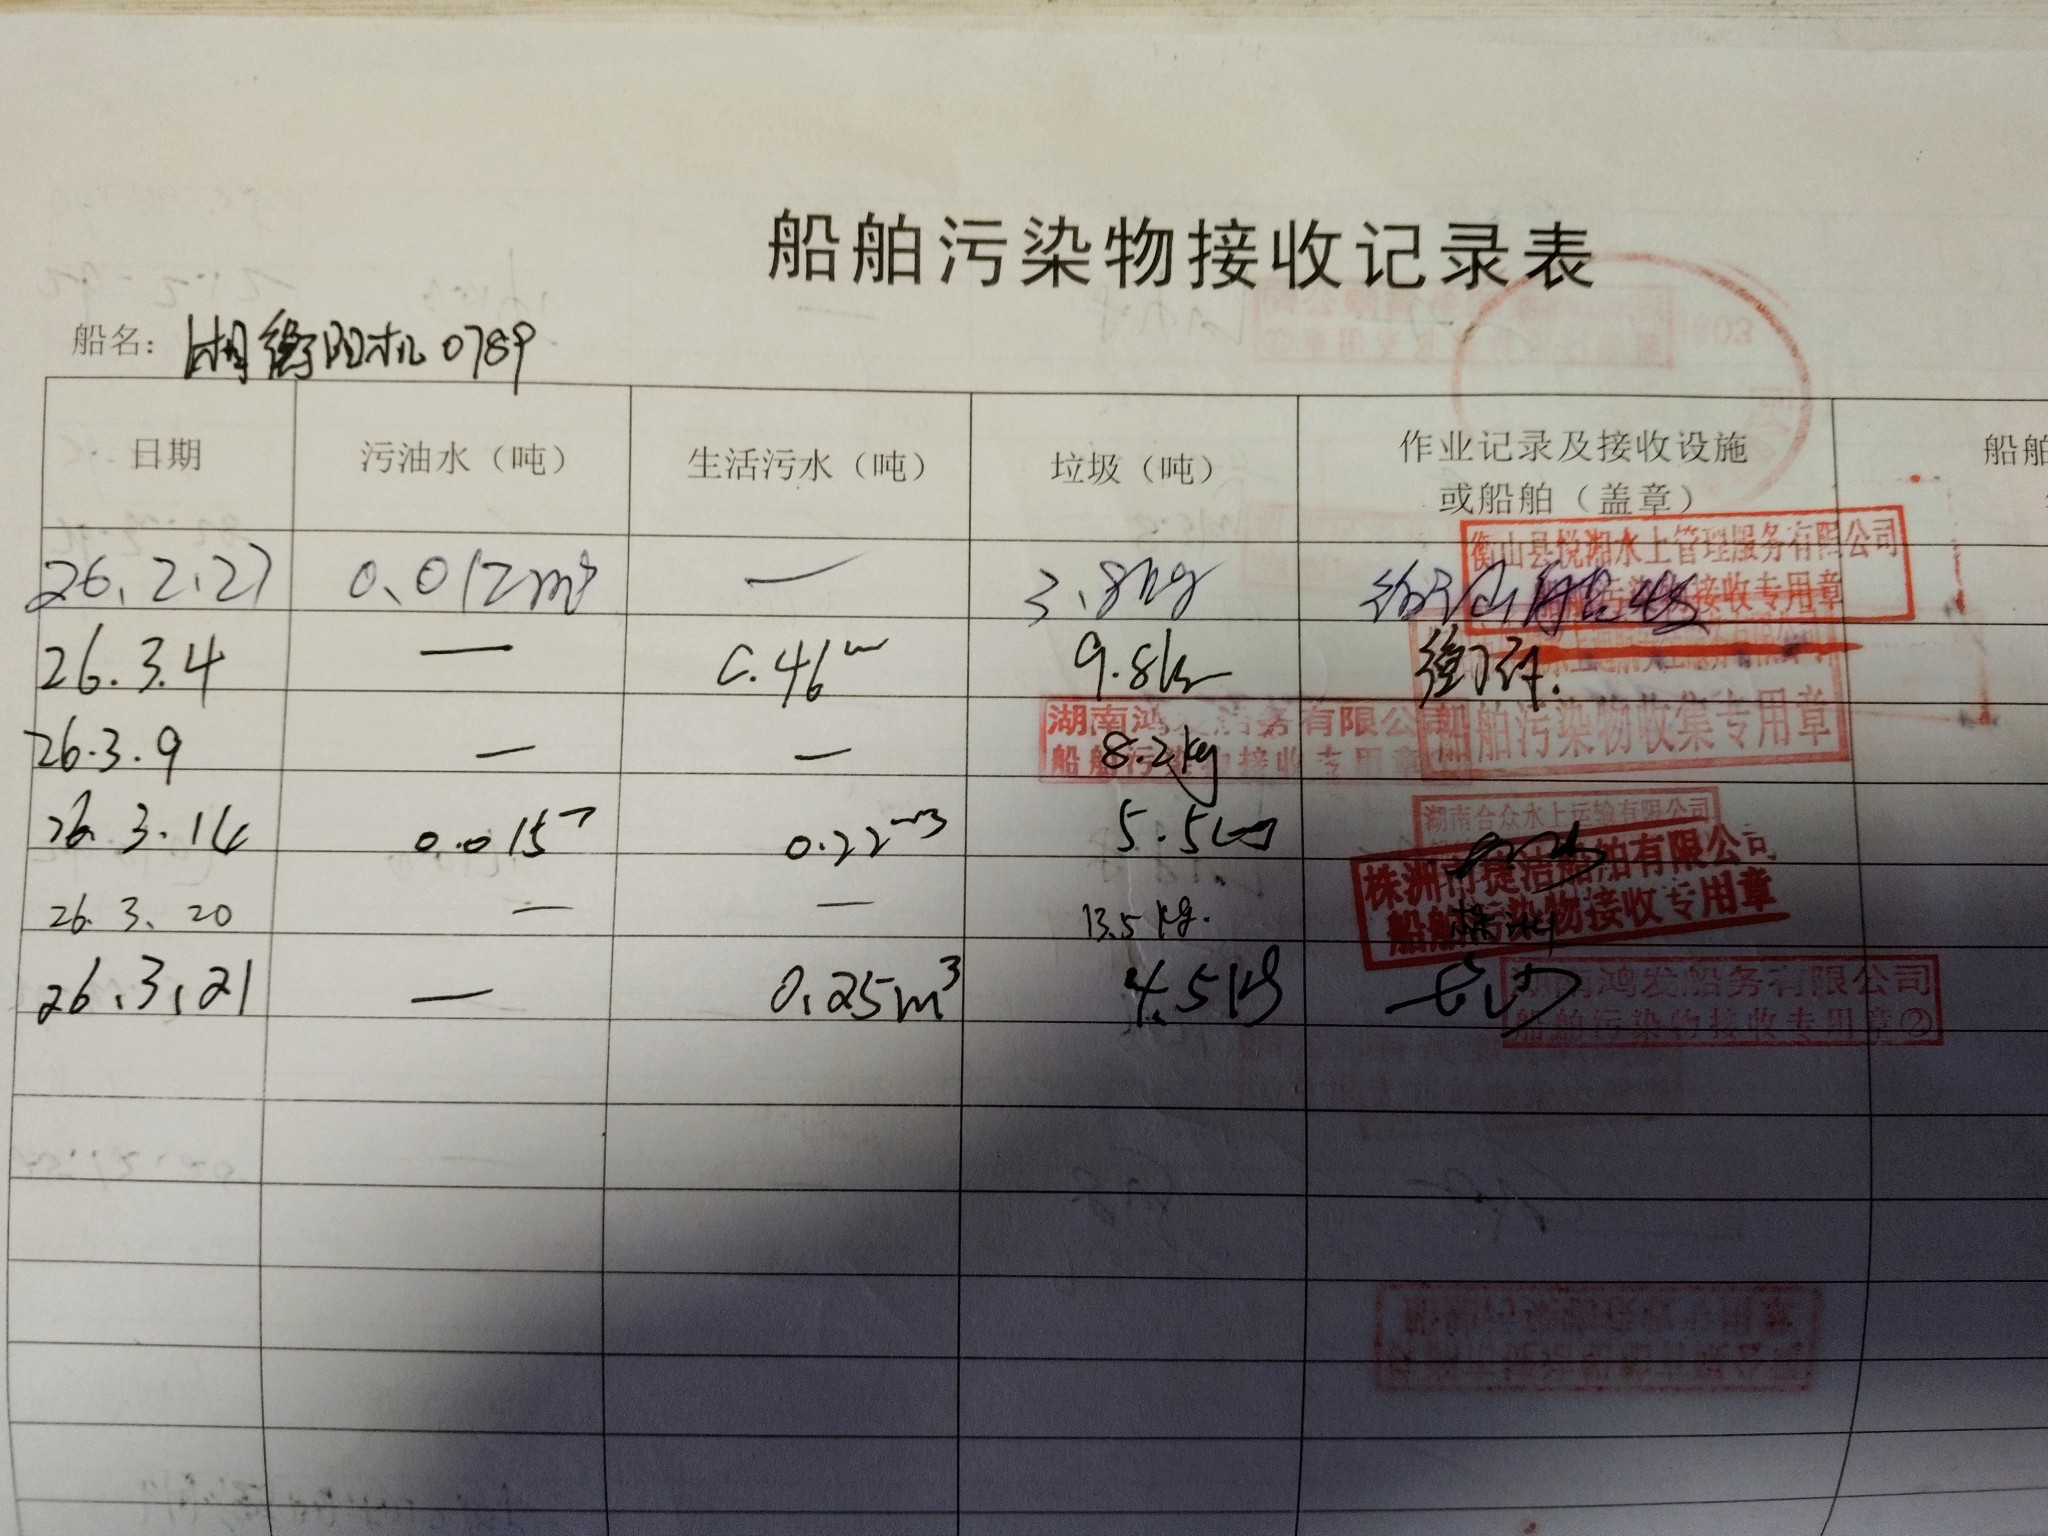 船舶污染物接收记录表
船名：湘衡阳机0789
日期 污油水（吨） 生活污水（吨） 垃圾（吨） 作业记录及接收设施 船舶
或船舶（盖章）
衡山县悦湘水上管理服务有限公司
接收专用章
26.2.27 0.012m³ — 3.8kg
26.3.4 — 0.46 9.8k
船舶污染物收集专用章
湖南鸿发船务有限公司
船舶污染物接收专用章
26.3.9 — — 8.2kg
26.3.14 0.015 0.22m3 5.5kg
湖南合众水上运输有限公司
株洲市捷洁船舶有限公司
船舶污染物接收专用章
26.3.20 — — 13.5kg. 株洲
26.3.21 — 0.25m³ 4.5kg
湖南鸿发船务有限公司
船舶污染物接收专用章②